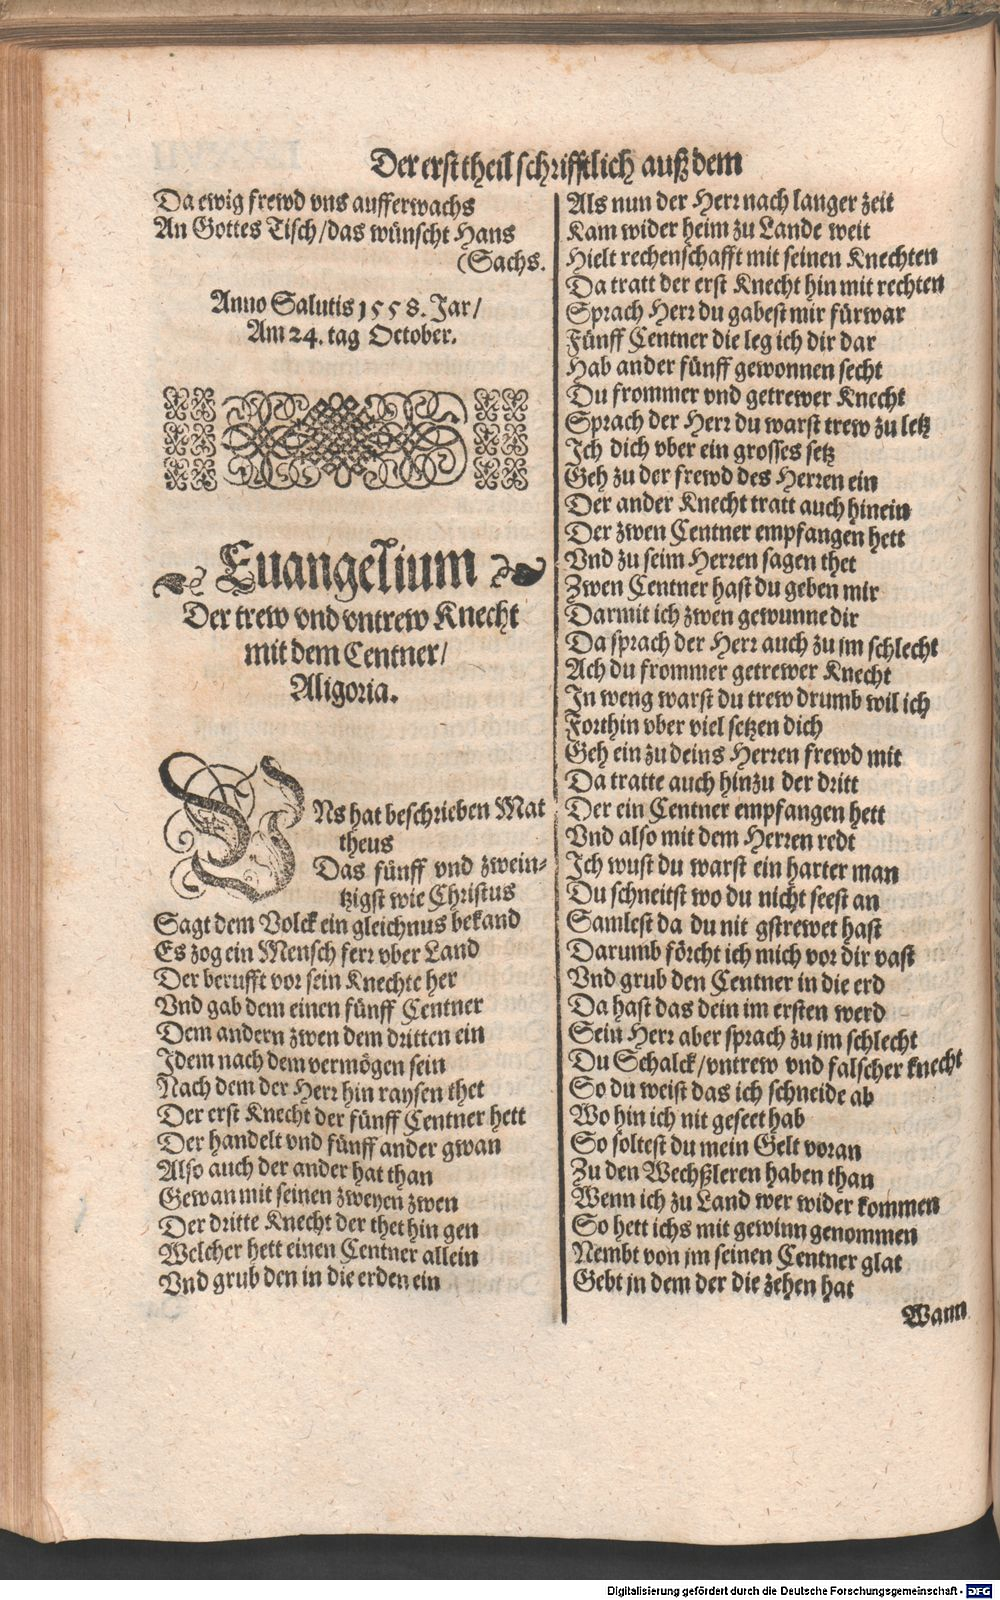 Der erst theil schrifftlich auß dem
Da ewig frewd vns aufferwachs
An Gottes Tisch/das wünscht Hans
(Sachs.
Anno Salutis 1558. Jar/
Am 24. tag October.
Euangelium
Der trew vnd vntrew Knecht
mit dem Centner/
Aligoria.
VNs hat beschrieben Mat
theus
Das fünff vnd zwein-
tzigst wie Christus
Sagt dem Volck ein gleichnus bekand
Es zog ein Mensch ferr vber Land
Der berufft vor sein Knechte her
Vnd gab dem einen fünff Centner
Dem andern zwen dem dritten ein
Idem nach dem vermögen sein
Nach dem der Herr hin raysen thet
Der erst Knecht der fünff Centner hett
Der handelt vnd fünff ander gwan
Also auch der ander hat than
Gewan mit seinen zweyen zwen
Der dritte Knecht der thet hin gen
Welcher hett einen Centner allein
Vnd grub den in die erden ein
Als nun der Herr nach langer zeit
Kam wider heim zu Lande weit
Hielt rechenschafft mit seinen Knechten
Da tratt der erst Knecht hin mit rechten
Sprach Herr du gabest mir fürwar
Fünff Centner die leg ich dir dar
Hab ander fünff gewonnen secht
Du frommer vnd getrewer Knecht
Sprach der Herr du warst trew zu letz
Ich dich vber ein grosses setz
Geh zu der frewd des Herren ein
Der ander Knecht tratt auch hinein
Der zwen Centner empfangen hett
Vnd zu seim Herren sagen thet
Zwen Centner hast du geben mir
Darmit ich zwen gewunne dir
Da sprach der Herr auch zu jm schlecht
Ach du frommer getrewer Knecht
In weng warst du trew drumb wil ich
Forthin vber viel setzen dich
Geh ein zu deins Herren frewd mit
Da tratte auch hinzu der dritt
Der ein Centner empfangen hett
Vnd also mit dem Herren redt
Ich wust du warst ein harter man
Du schneitst wo du nicht seest an
Samlest da du nit gstrewet hast
Darumb förcht ich mich vor dir vast
Vnd grub den Centner in die erd
Da hast das dein im ersten werd
Sein Herr aber sprach zu jm schlecht
Du Schalck/vntrew vnd falscher knecht
So du weist das ich schneide ab
Wo hin ich nit geseet hab
So soltest du mein Gelt voran
Zu den Wechßleren haben than
Wenn ich zu Land wer wider kommen
So hett ichs mit gewinn genommen
Nembt von jm seinen Centner glat
Gebt jn dem der die zehen hat
Wann
Digitalisierung gefördert durch die Deutsche Forschungsgemeinschaft - DFG